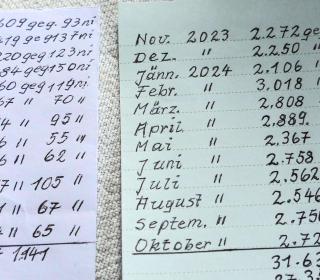 609 geg. 93 ni
419 ge 9137 ni
220 geg 123 ni
84 geg 150 ni
60 geg 119 ni
67 " 70 "
" 95 "
" 55 "
" 62 "
" 105 "
" 67 "
" 65 "
1.941
Nov. 2023 2.272 ge
Dez. " 2.250 "
Jänn. 2024 2.106
Febr. " 3.018
März. " 2.808
April " 2.889.
Mai " 2.367
Juni " 2.758
Juli " 2.562
August " 2.546
Septem. " 2.750
Oktober " 2.72
31.63